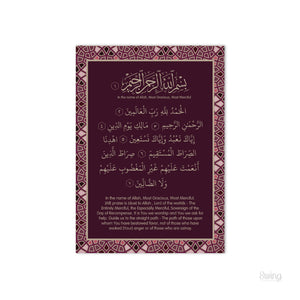 بِسْمِ اللَّهِ الرَّحْمَٰنِ الرَّحِيمِ ١
In the name of Allah, Most Gracious, Most Merciful
الْحَمْدُ لِلَّهِ رَبِّ الْعَالَمِينَ ٢
الرَّحْمَٰنِ الرَّحِيمِ ٣ مَالِكِ يَوْمِ الدِّينِ ٤
إِيَّاكَ نَعْبُدُ وَإِيَّاكَ نَسْتَعِينُ ٥ اهْدِنَا
الصِّرَاطَ الْمُسْتَقِيمَ ٦ صِرَاطَ الَّذِينَ
أَنْعَمْتَ عَلَيْهِمْ غَيْرِ الْمَغْضُوبِ عَلَيْهِمْ
وَلَا الضَّالِّينَ ٧
In the name of Allah, Most Gracious, Most Merciful.
[All] praise is [due] to Allah, Lord of the worlds - The
Entirely Merciful, the Especially Merciful, Sovereign of the
Day of Recompense. It is You we worship and You we ask for
help. Guide us to the straight path - The path of those upon
whom You have bestowed favor, not of those who have
evoked [Your] anger or of those who are astray.